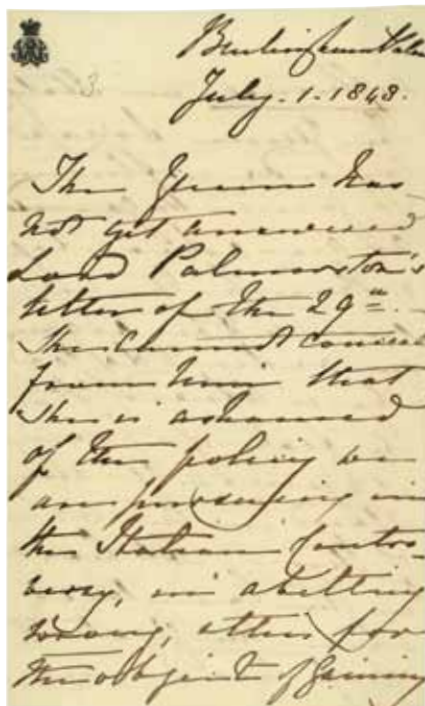 3.
Buckingham Palace
July. 1. 1848.
The Queen has
not yet answered
Lord Palmerston's
letter of the 29th.
She cannot conceal
from him that
she is ashamed
of the policy we
are pursuing in
this Italian Contro-
versy, in abetting
wrong, &
this for
the object of gaining